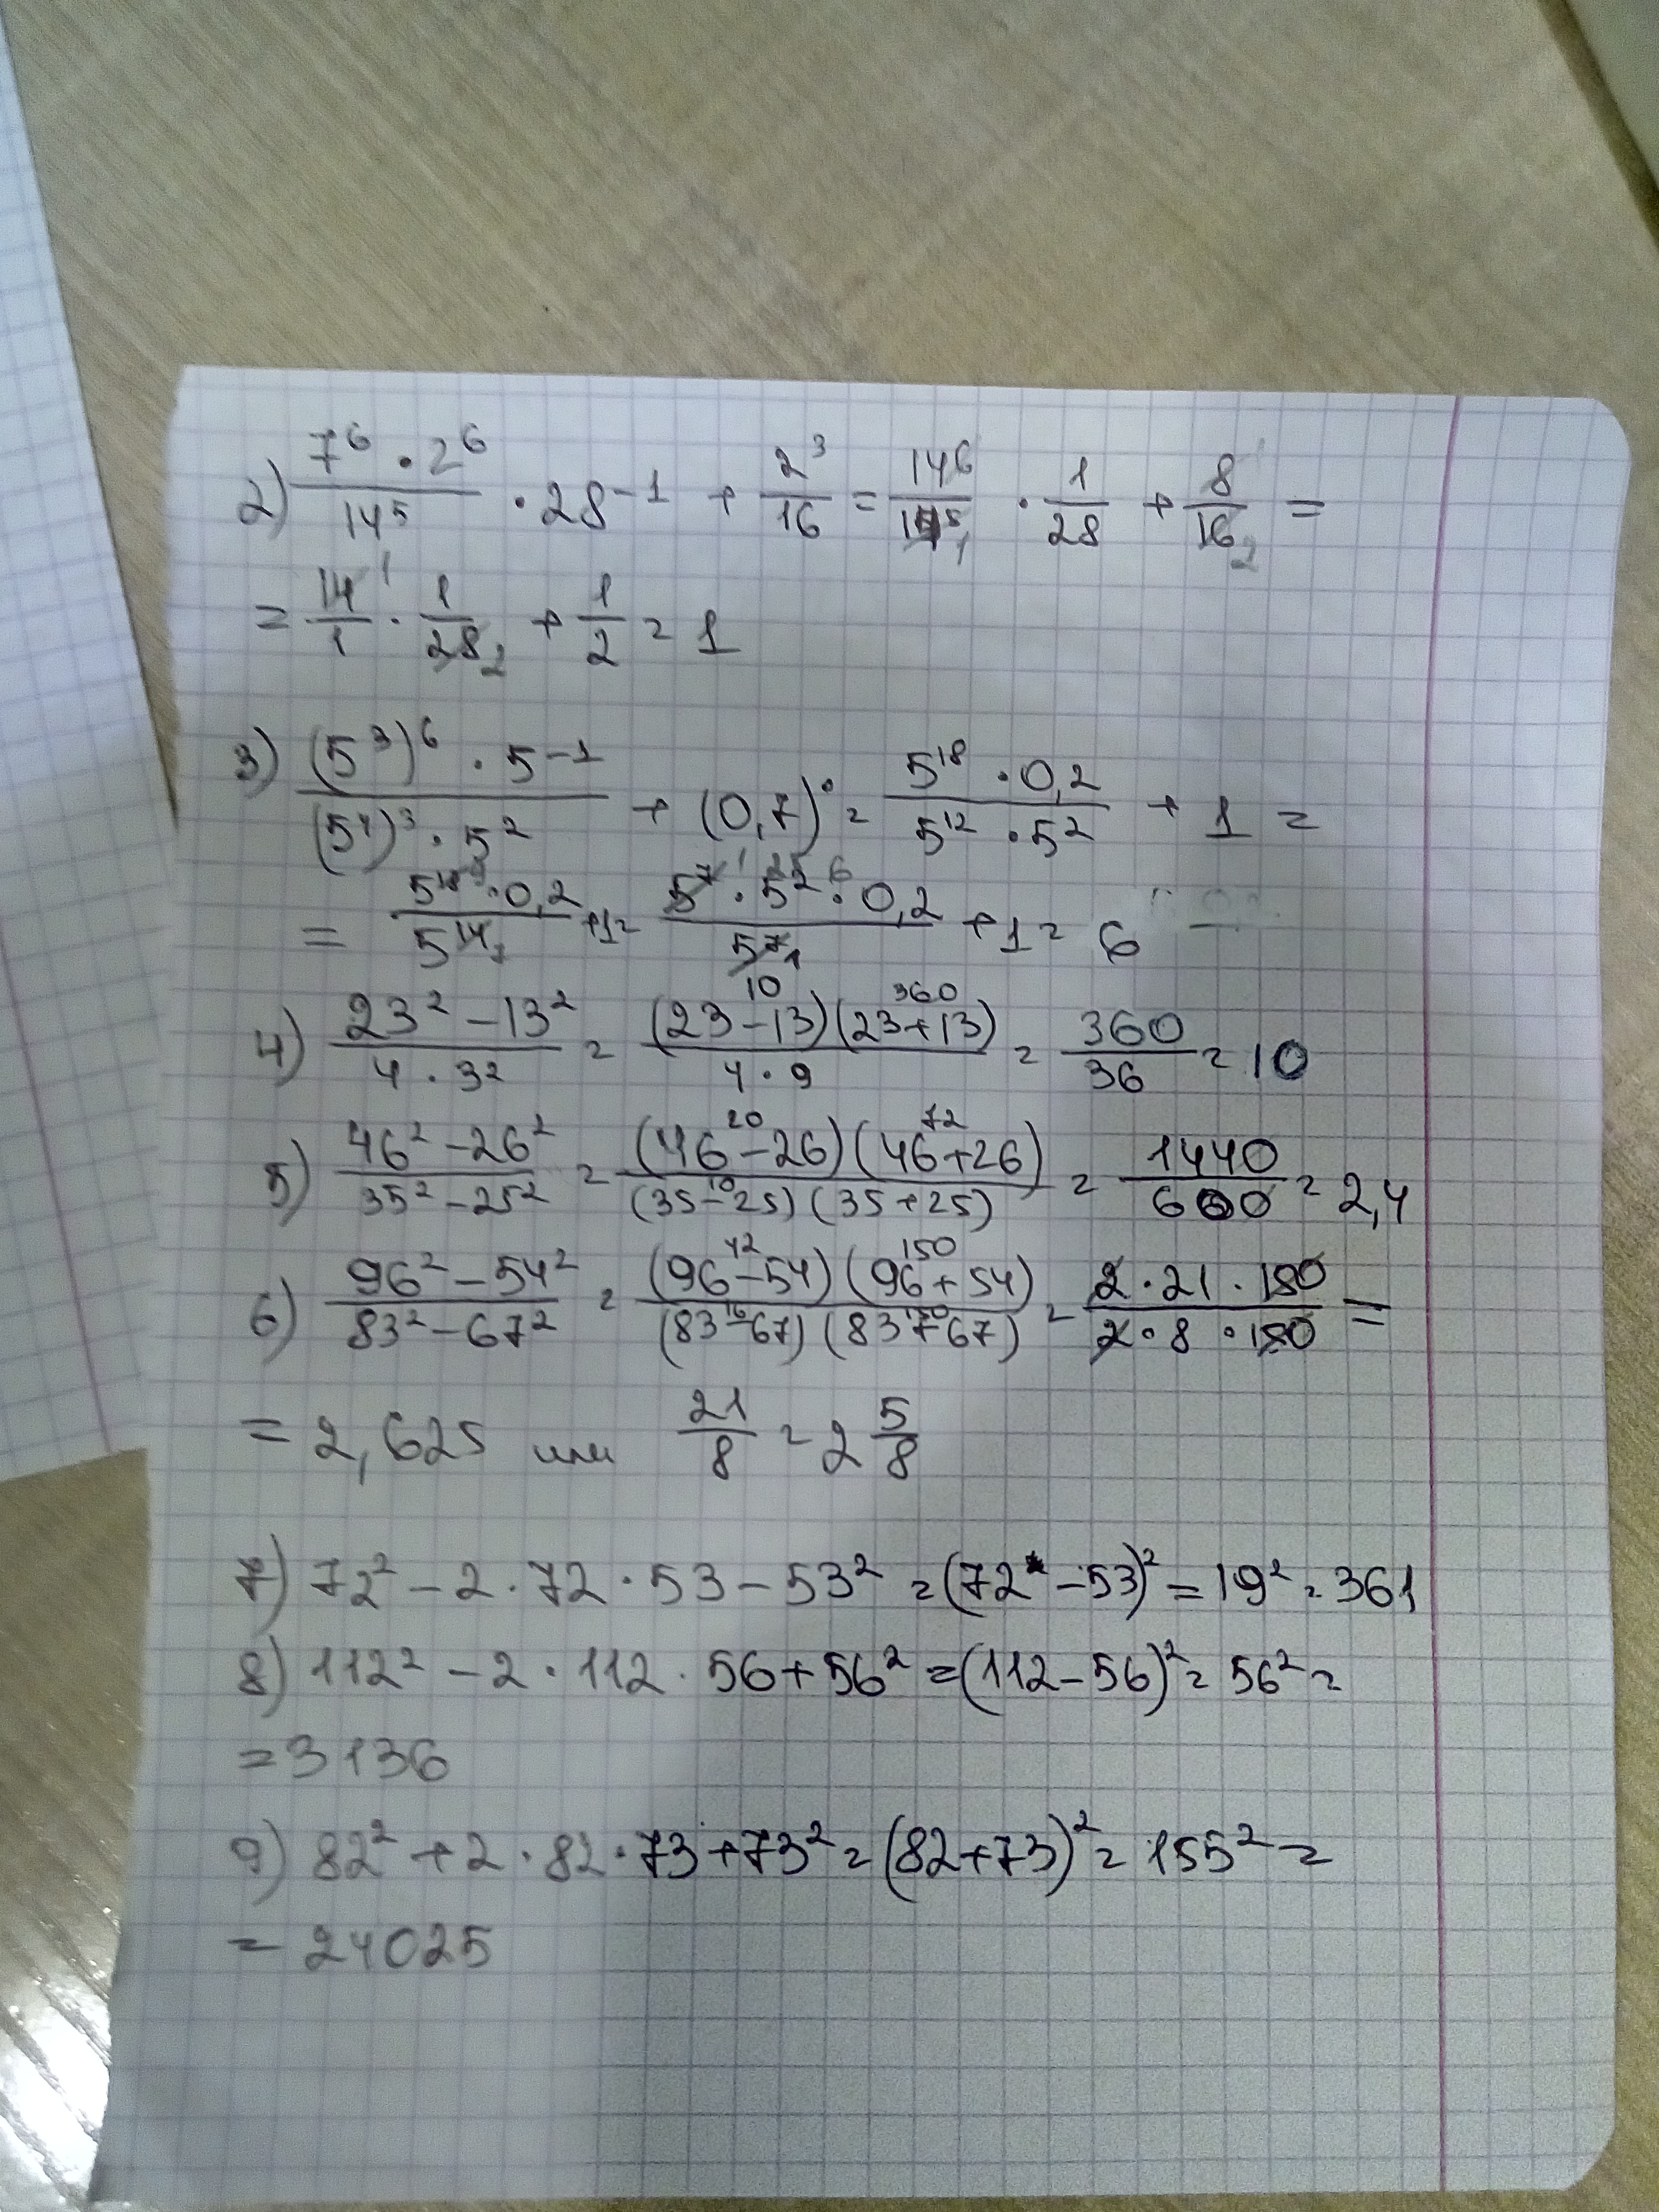 2) 7⁶ · 2⁶ / 14⁵ · 28⁻¹ + 2³/16 = 14⁶/14⁵ · 1/28 + 8/16 =
= 14/1 · 1/28 + 1/2 = 1
3) (5³)⁶ · 5⁻¹ / (5⁴)³ · 5² + (0,7)⁰ = 5¹⁸ · 0,2 / 5¹² · 5² + 1 =
= 5¹⁸ · 0,2 / 5¹⁴ + 1 = 5⁷ · 5² · 0,2 / 5⁷ + 1 = 6
4) 23² – 13² / 4 · 3² = (23 – 13)(23 + 13) / 4 · 9 = 360/36 = 10
5) 46² – 26² / 35² – 25² = (46 – 26)(46 + 26) / (35 – 25)(35 + 25) = 1440/600 = 2,4
6) 96² – 54² / 83² – 67² = (96 – 54)(96 + 54) / (83 – 67)(83 + 67) = 2 · 21 · 150 / 2 · 8 · 150 =
= 2,625 или 21/8 = 2 5/8
7) 72² – 2 · 72 · 53 – 53² = (72 – 53)² = 19² = 361
8) 112² – 2 · 112 · 56 + 56² = (112 – 56)² = 56² =
= 3136
9) 82² + 2 · 82 · 73 + 73² = (82 + 73)² = 155² =
= 24025